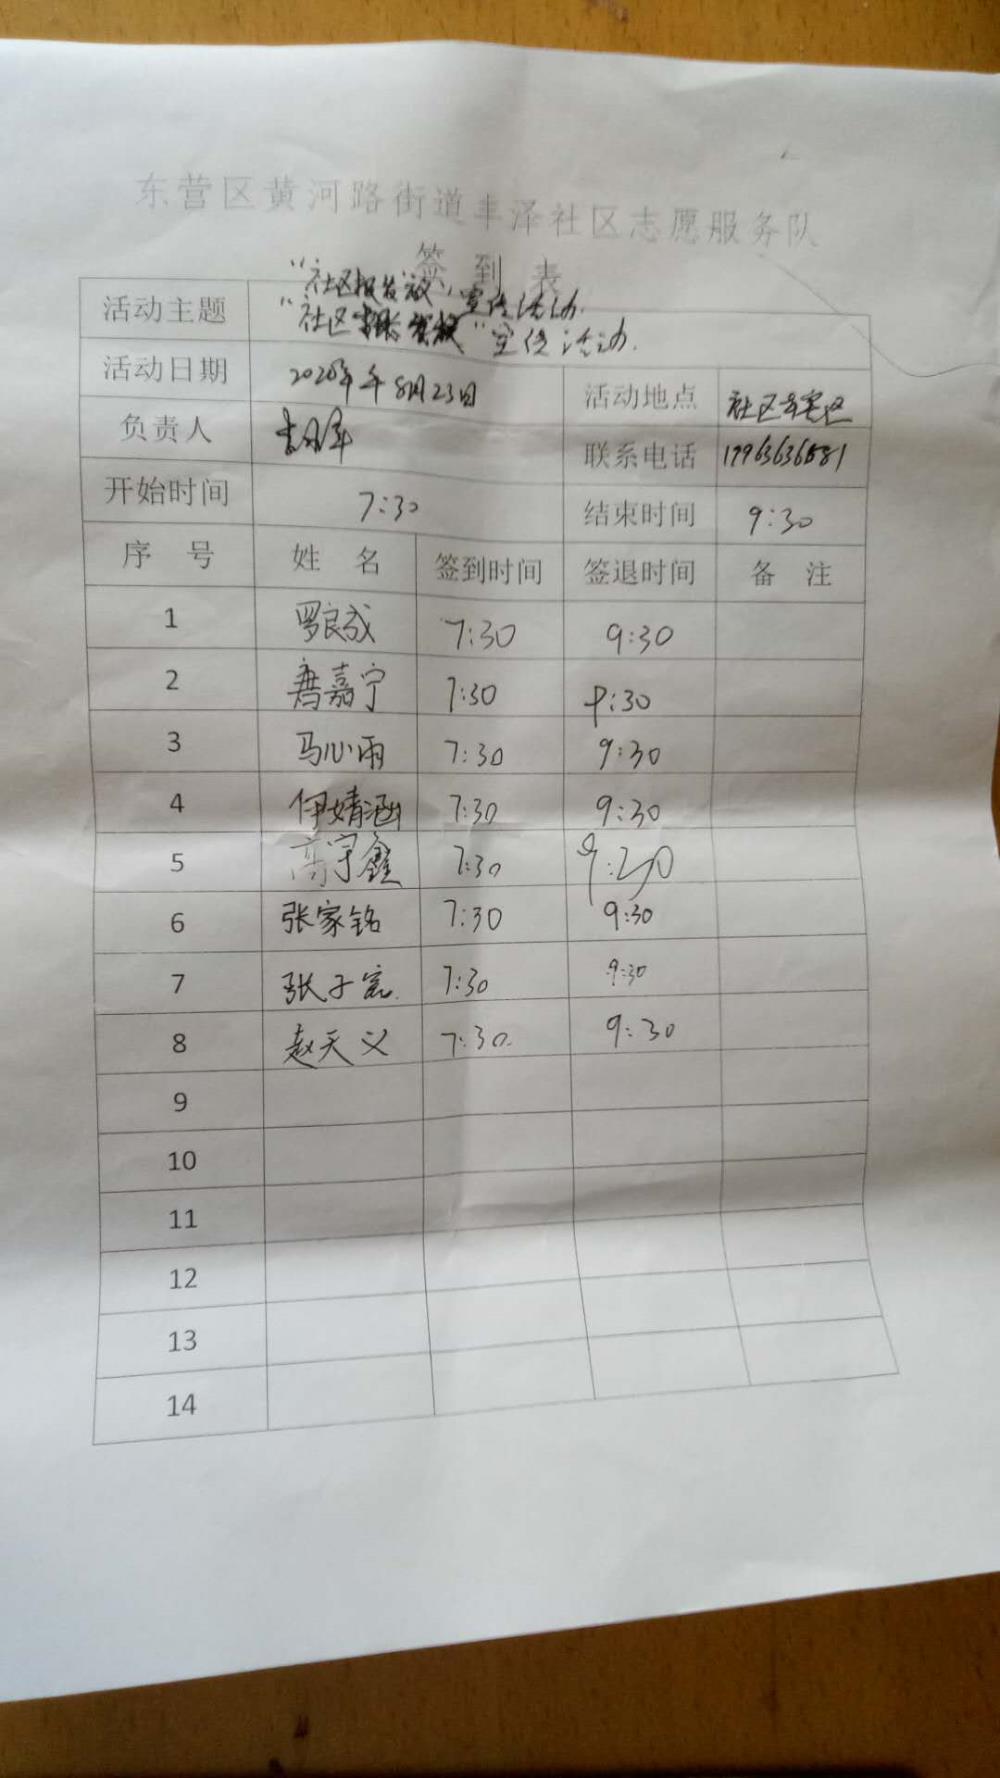 东营区黄河路街道丰泽社区志愿服务队
签到表
活动主题 "社区报发放"宣传活动.
"社区 "宣传活动.
活动日期 2020年 8月23日 活动地点 社区
负责人 联系电话
开始时间 7:30 结束时间 9:30
序 号 姓 名 签到时间 签退时间 备 注
1 罗良成 7:30 9:30
2 唐嘉宁 7:30 9:30
3 马心雨 7:30 9:30
4 伊婧涵 7:30 9:30
5 高宇鑫 7:30 9:30
6 张家铭 7:30 9:30
7 张子 7:30 9:30
8 赵天义 7:30 9:30
9
10
11
12
13
14